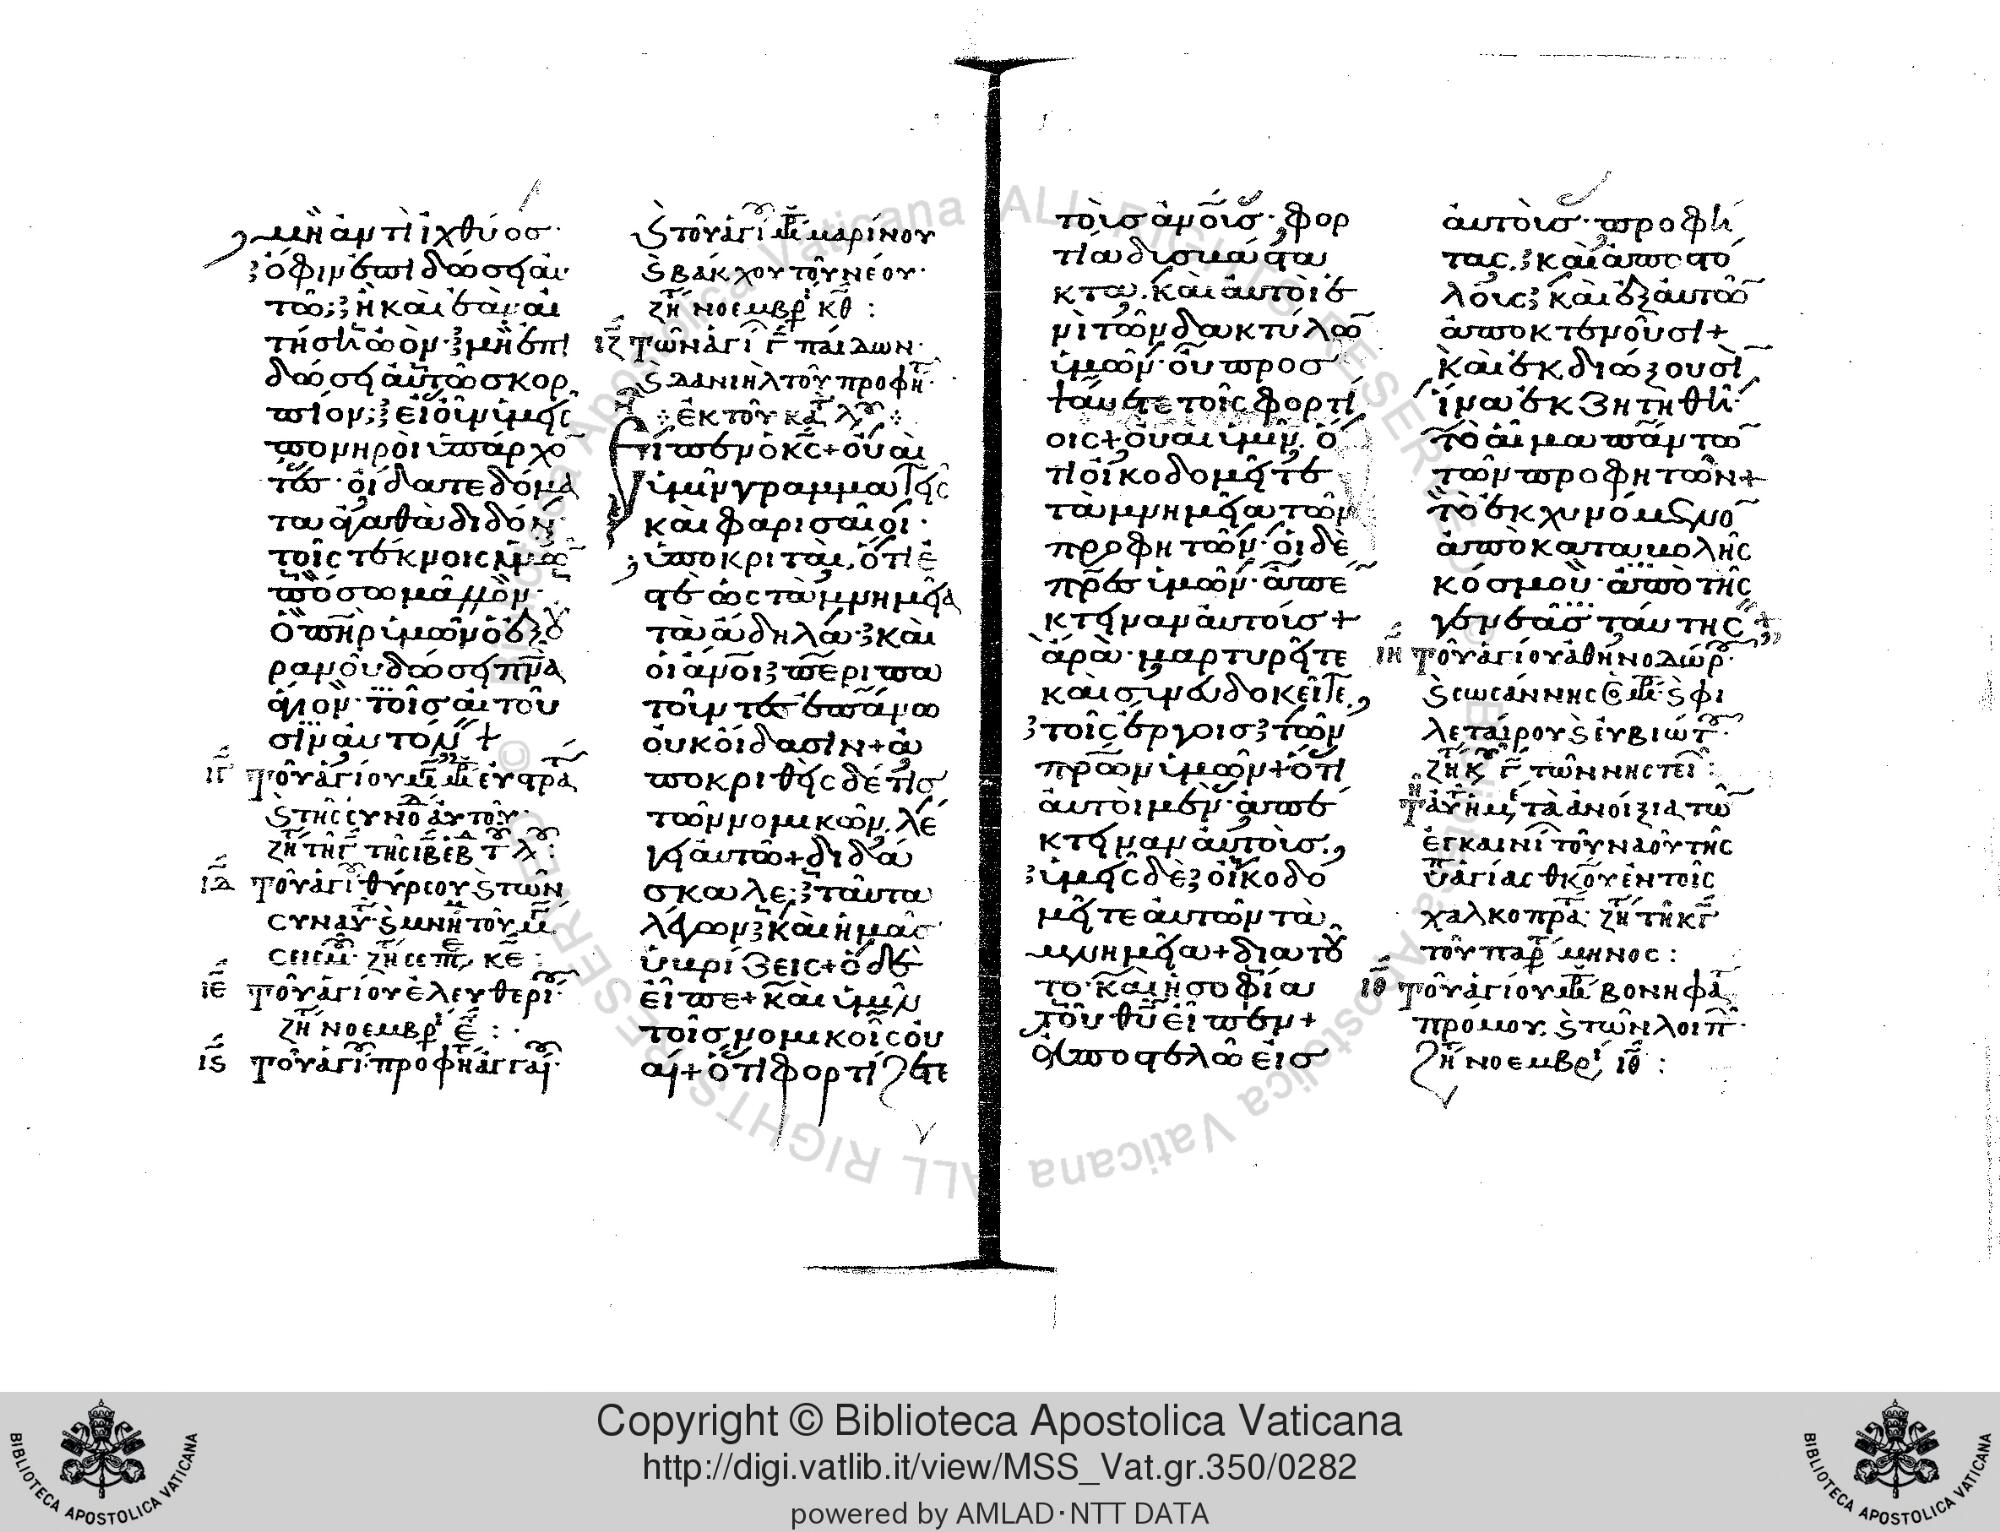 μὴ ἀντὶ ἰχθύος·
ὄφιν ἐπιδώσει αὐ
τῶ; ἢ καὶ ἐὰν αἰ
τήσῃ ὠὸν· μὴ ἐπι
δώσει αὐτῶ σκορ
πίον; εἰ οὖν ὑμεῖς
πονηροὶ ὑπάρχο
τες· οἴδατε δόμα
τα ἀγαθὰ διδόν
τοῖς τέκνοις ὑμῶ
πόσω μᾶλλον·
ὁ πηρ ὑμῶν ὁ ἐξ οὐ
ρανοῦ δώσει πνα
ἅγιον· τοῖς αἰτοῦ
σιν αὐτόν +
ιγ τοῦ ἁγίου μεγ μρ εὐστρα
ϗ τῆς συνοδ αὐτοῦ·
ζη τῇ γ τῆς ιβ εβδ τ λ :
ιδ τοῦ ἁγι θύρσου ϗ τῶν
συναυ· ϗ μνη τοῦ με
σεισμ· ζη σεπ κε :
ιε τοῦ ἁγίου ἐλευθερι·
ζη νοεμβρ ε :
ις τοῦ ἁγι προφη ἀγγαι·
ϗ τοῦ ἁγι μρ μαρίνου
ϗ βάκχου τοῦ νέου·
ζη νοεμβρ κθ :
ιζ τῶν ἁγι γ παίδων·
ϗ δανιὴλ τοῦ προφη·
ἐκ τοῦ κατ λου
εἶπεν ὁ κς + οὐαὶ
ὑμῖν γραμματεῖς
καὶ φαρισαῖοι·
ὑποκριταὶ, ὅτι ἐ
στὲ ὡς τὰ μνημεῖα
τὰ ἄδηλα· καὶ
οἱ ἀνοι περιπα
τοῦντες ἐπάνω
οὐκ οἴδασιν + ἀ
ποκριθεὶς δέ τις
τῶν νομικῶν, λέ
γει αὐτῶ + διδά
σκαλε· ταῦτα
λέγων καὶ ἡμᾶς
ὑβρίζεις + ὁ δὲ
εἶπε + καὶ ὑμῖν
τοῖς νομικοῖς οὐ
αί + ὅτι φορτίζετε
τοὺς ἀνους· φορ
τία δυσβάστα
κτα· καὶ αὐτοὶ ἑ
νὶ τῶν δακτύλω
ὑμῶν· οὐ προσ
ψαύετε τοῖς φορτί
οις + οὐαὶ ὑμῖν, ὅ
τι οἰκοδομεῖτε
τὰ μνημεῖα τῶν
προφητῶν· οἱ δὲ
πρες ὑμῶν· ἀπε
κτειναν αὐτούς +
ἄρα· μαρτυρεῖτε
καὶ συνευδοκεῖτε,
τοῖς ἔργοις τῶν
πρων ὑμῶν + ὅτι
αὐτοὶ μὲν· ἀπέ
κτειναν αὐτοὺς,
ὑμεῖς δὲ οἰκοδο
μεῖτε αὐτῶν τὰ
μνημεῖα + διὰ τοῦ
το· καὶ ἡ σοφία
τοῦ θυ εἶπεν +
ἀποστελῶ εἰς
αὐτοὺς· προφή
τας, καὶ ἀποστό
λους καὶ ἐξ αὐτῶ
ἀποκτενοῦσι +
καὶ ἐκδιώξουσι
ἵνα ἐκζητηθῆ·
τὸ αἷμα πάντω
τῶν προφητῶν +
τὸ ἐκχυνόμενο
ἀπὸ καταβολῆς
κόσμου· ἀπὸ τῆς
γενεᾶς ταύτης +
ιη τοῦ ἁγίου ἀθηνοδώρ·
ϗ σωσάννης ὁσ μρ· ϗ φι
λεταίρου ϗ εὐβιώτ·
ζη κυρ γ τῶν νηστει :
τ αὐτ ἡμ, τὰ ἀνοίξια τῶ
ἐγκαινι τοῦ ναοῦ τῆς
ὑπ ἁγίας θκου ἐν τοῖς
χαλκοπρα· ζη τῆ κγ
τοῦ παρ μηνός :
ιθ τοῦ ἁγίου μρ βονηφα
πρόμου, ϗ τῶν λοιπ·
ζη νοεμβρ ιθ :
Copyright © Biblioteca Apostolica Vaticana
http://digi.vatlib.it/view/MSS_Vat.gr.350/0282
powered by AMLAD·NTT DATA
BIBLIOTECA APOSTOLICA VATICANA
BIBLIOTECA APOSTOLICA VATICANA